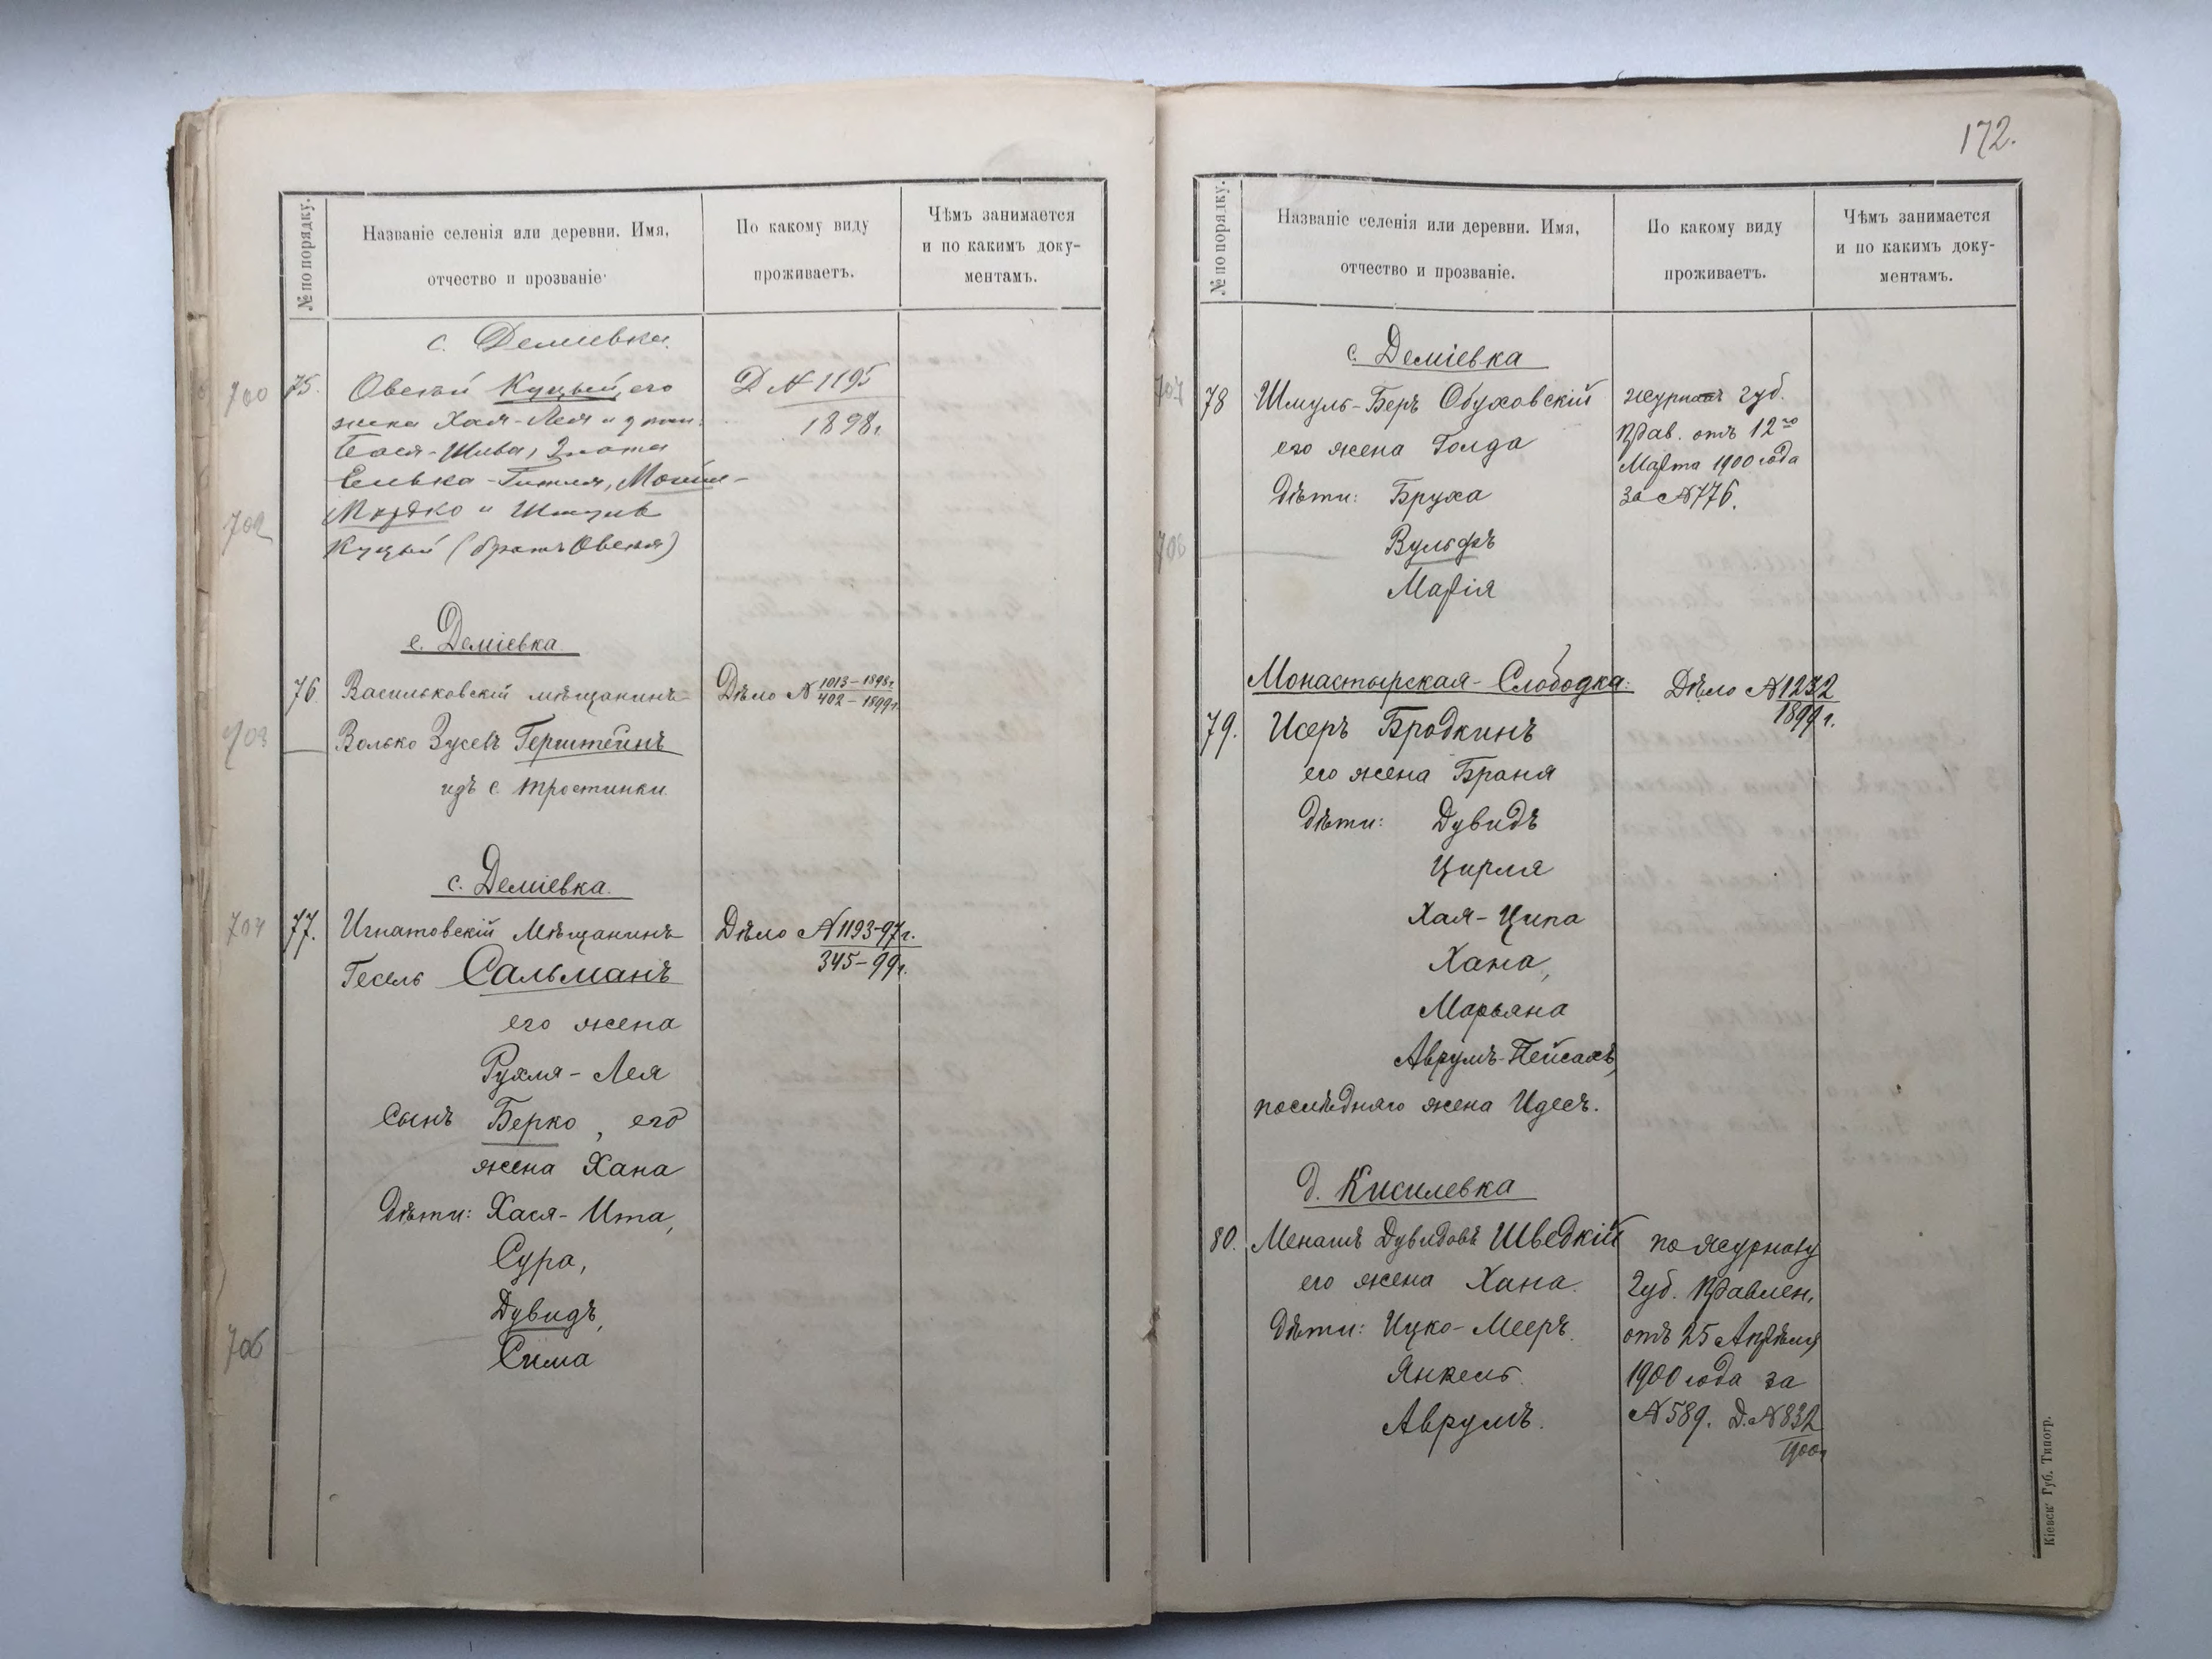 № по порядку.
Названіе селенія или деревни. Имя,
отчество и прозваніе
По какому виду
проживаетъ.
Чѣмъ занимается
и по какимъ доку-
ментамъ.
с. Деміевка.
700
75. Овсей Куцый, его
жена Хая-Лея и дѣти:
Бася-Шива, Злота
Енька-Гитля, Мошко-
702
Мордко и Шмуль
Куцый (братъ Овсея)
Д № 1195
1898 г.
с. Деміевка
76 Васильковскій мѣщанинъ
703
Волько Зусевъ Герштейнъ
изъ с. Тростинки
Дѣло № 1013 - 1898 г.
402 - 1899 г.
с. Деміевка.
704
77. Игнатовскій Мѣщанинъ
Гесель Сальманъ
его жена
Рухля-Лея
Сынъ Берко, его
жена Хана
Дѣти: Хася-Ита,
Сура,
Дувидъ,
706
Сима
Дѣло № 1193-97 г.
345-99 г.
172.
№ по порядку.
Названіе селенія или деревни. Имя,
отчество и прозваніе.
По какому виду
проживаетъ.
Чѣмъ занимается
и по какимъ доку-
ментамъ.
с. Деміевка
707
78 Шмуль-Беръ Обуховскій
его жена Голда
Дѣти: Бруха
708
Вульфъ
Марія
журналъ губ.
Прав. отъ 12го
Марта 1900 года
за № 776.
Монастырская-Слободка:
79. Исеръ Бродкинъ
его жена Броня
дѣти: Дувидъ
Цирля
Хая-Ципа
Хана,
Марьяна
Аврумъ-Пейсахъ,
послѣдняго жена Идесъ.
Дѣло № 1232
1899 г.
д. Кисилевка
80. Менашъ Дувидовъ Шведкій
его жена Хана.
Дѣти: Ицко-Мееръ.
Янкель.
Аврумъ.
по журналу
Губ. Правлен.
отъ 25 Апрѣля
1900 года за
№ 589. Д. № 832
1900 г.
Кіевск. Губ. Типогр.